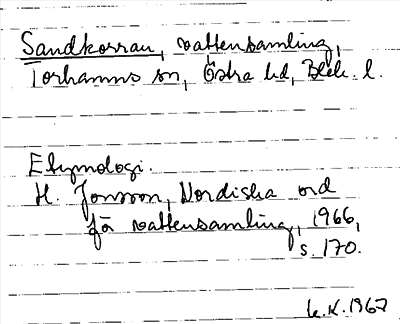 Sandkorran, vattensamling,
Torhamns sn, Östra hd, Blek. l.
Etymologi.
H. Jonsson, Nordiska ord
för vattensamling, 1966,
s. 170.
k.K. 1967